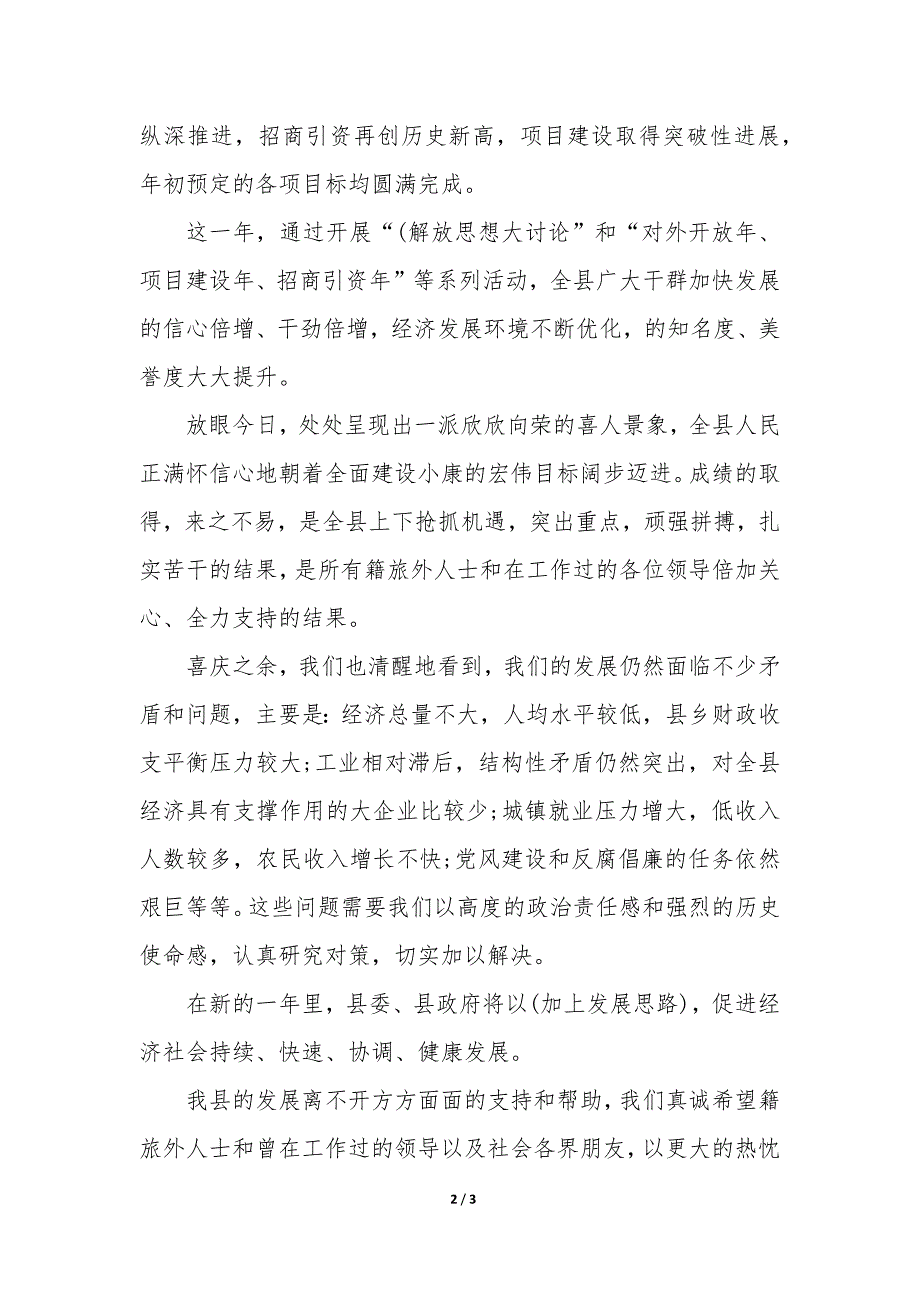 纵深推进，招商引资再创历史新高，项目建设取得突破性进展，
年初预定的各项目标均圆满完成。
这一年，通过开展“(解放思想大讨论”和“对外开放年、
项目建设年、招商引资年”等系列活动，全县广大干群加快发展
的信心倍增、干劲倍增，经济发展环境不断优化，的知名度、美
誉度大大提升。
放眼今日，处处呈现出一派欣欣向荣的喜人景象，全县人民
正满怀信心地朝着全面建设小康的宏伟目标阔步迈进。成绩的取
得，来之不易，是全县上下抢抓机遇，突出重点，顽强拼搏，扎
实苦干的结果，是所有籍旅外人士和在工作过的各位领导倍加关
心、全力支持的结果。
喜庆之余，我们也清醒地看到，我们的发展仍然面临不少矛
盾和问题，主要是：经济总量不大，人均水平较低，县乡财政收
支平衡压力较大;工业相对滞后，结构性矛盾仍然突出，对全县
经济具有支撑作用的大企业比较少;城镇就业压力增大，低收入
人数较多，农民收入增长不快;党风建设和反腐倡廉的任务依然
艰巨等等。这些问题需要我们以高度的政治责任感和强烈的历史
使命感，认真研究对策，切实加以解决。
在新的一年里，县委、县政府将以(加上发展思路)，促进经
济社会持续、快速、协调、健康发展。
我县的发展离不开方方面面的支持和帮助，我们真诚希望籍
旅外人士和曾在工作过的领导以及社会各界朋友，以更大的热忱
2 / 3